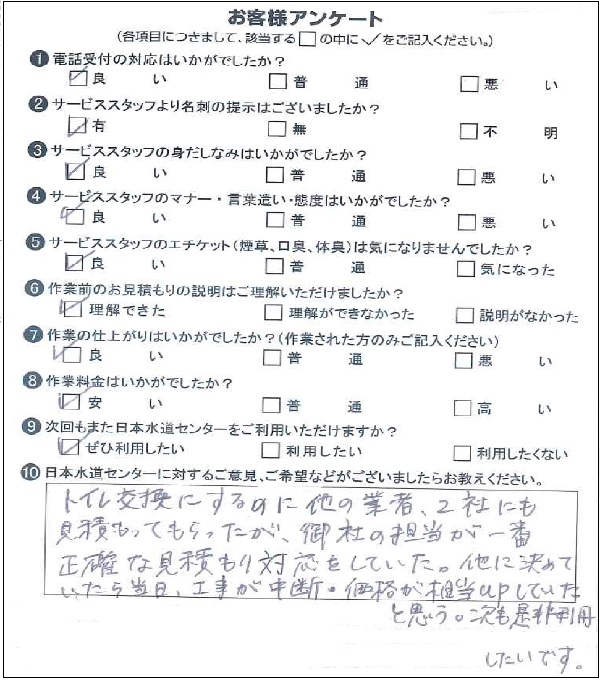 お客様アンケート
(各項目につきまして、該当する□の中に✓をご記入ください。)
❶電話受付の対応はいかがでしたか?
☑良い □普通 □悪い
❷サービススタッフより名刺の提示はございましたか?
☑有 □無 □不明
❸サービススタッフの身だしなみはいかがでしたか?
☑良い □普通 □悪い
❹サービススタッフのマナー・言葉遣い・態度はいかがでしたか?
☑良い □普通 □悪い
❺サービススタッフのエチケット(煙草、口臭、体臭)は気になりませんでしたか?
☑良い □普通 □気になった
❻作業前のお見積もりの説明はご理解いただけましたか?
☑理解できた □理解ができなかった □説明がなかった
❼作業の仕上がりはいかがでしたか?(作業された方のみご記入ください)
☑良い □普通 □悪い
❽作業料金はいかがでしたか?
☑安い □普通 □高い
❾次回もまた日本水道センターをご利用いただけますか?
☑ぜひ利用したい □利用したい □利用したくない
❿日本水道センターに対するご意見、ご希望などがございましたらお教えください。
トイレ交換にするのに他の業者、2社にも
見積もってもらったが、御社の担当が一番
正確な見積もり対応をしていた。他に決めて
いたら当日、工事が中断。価格が相当upしていた
と思う。次も是非利用
したいです。